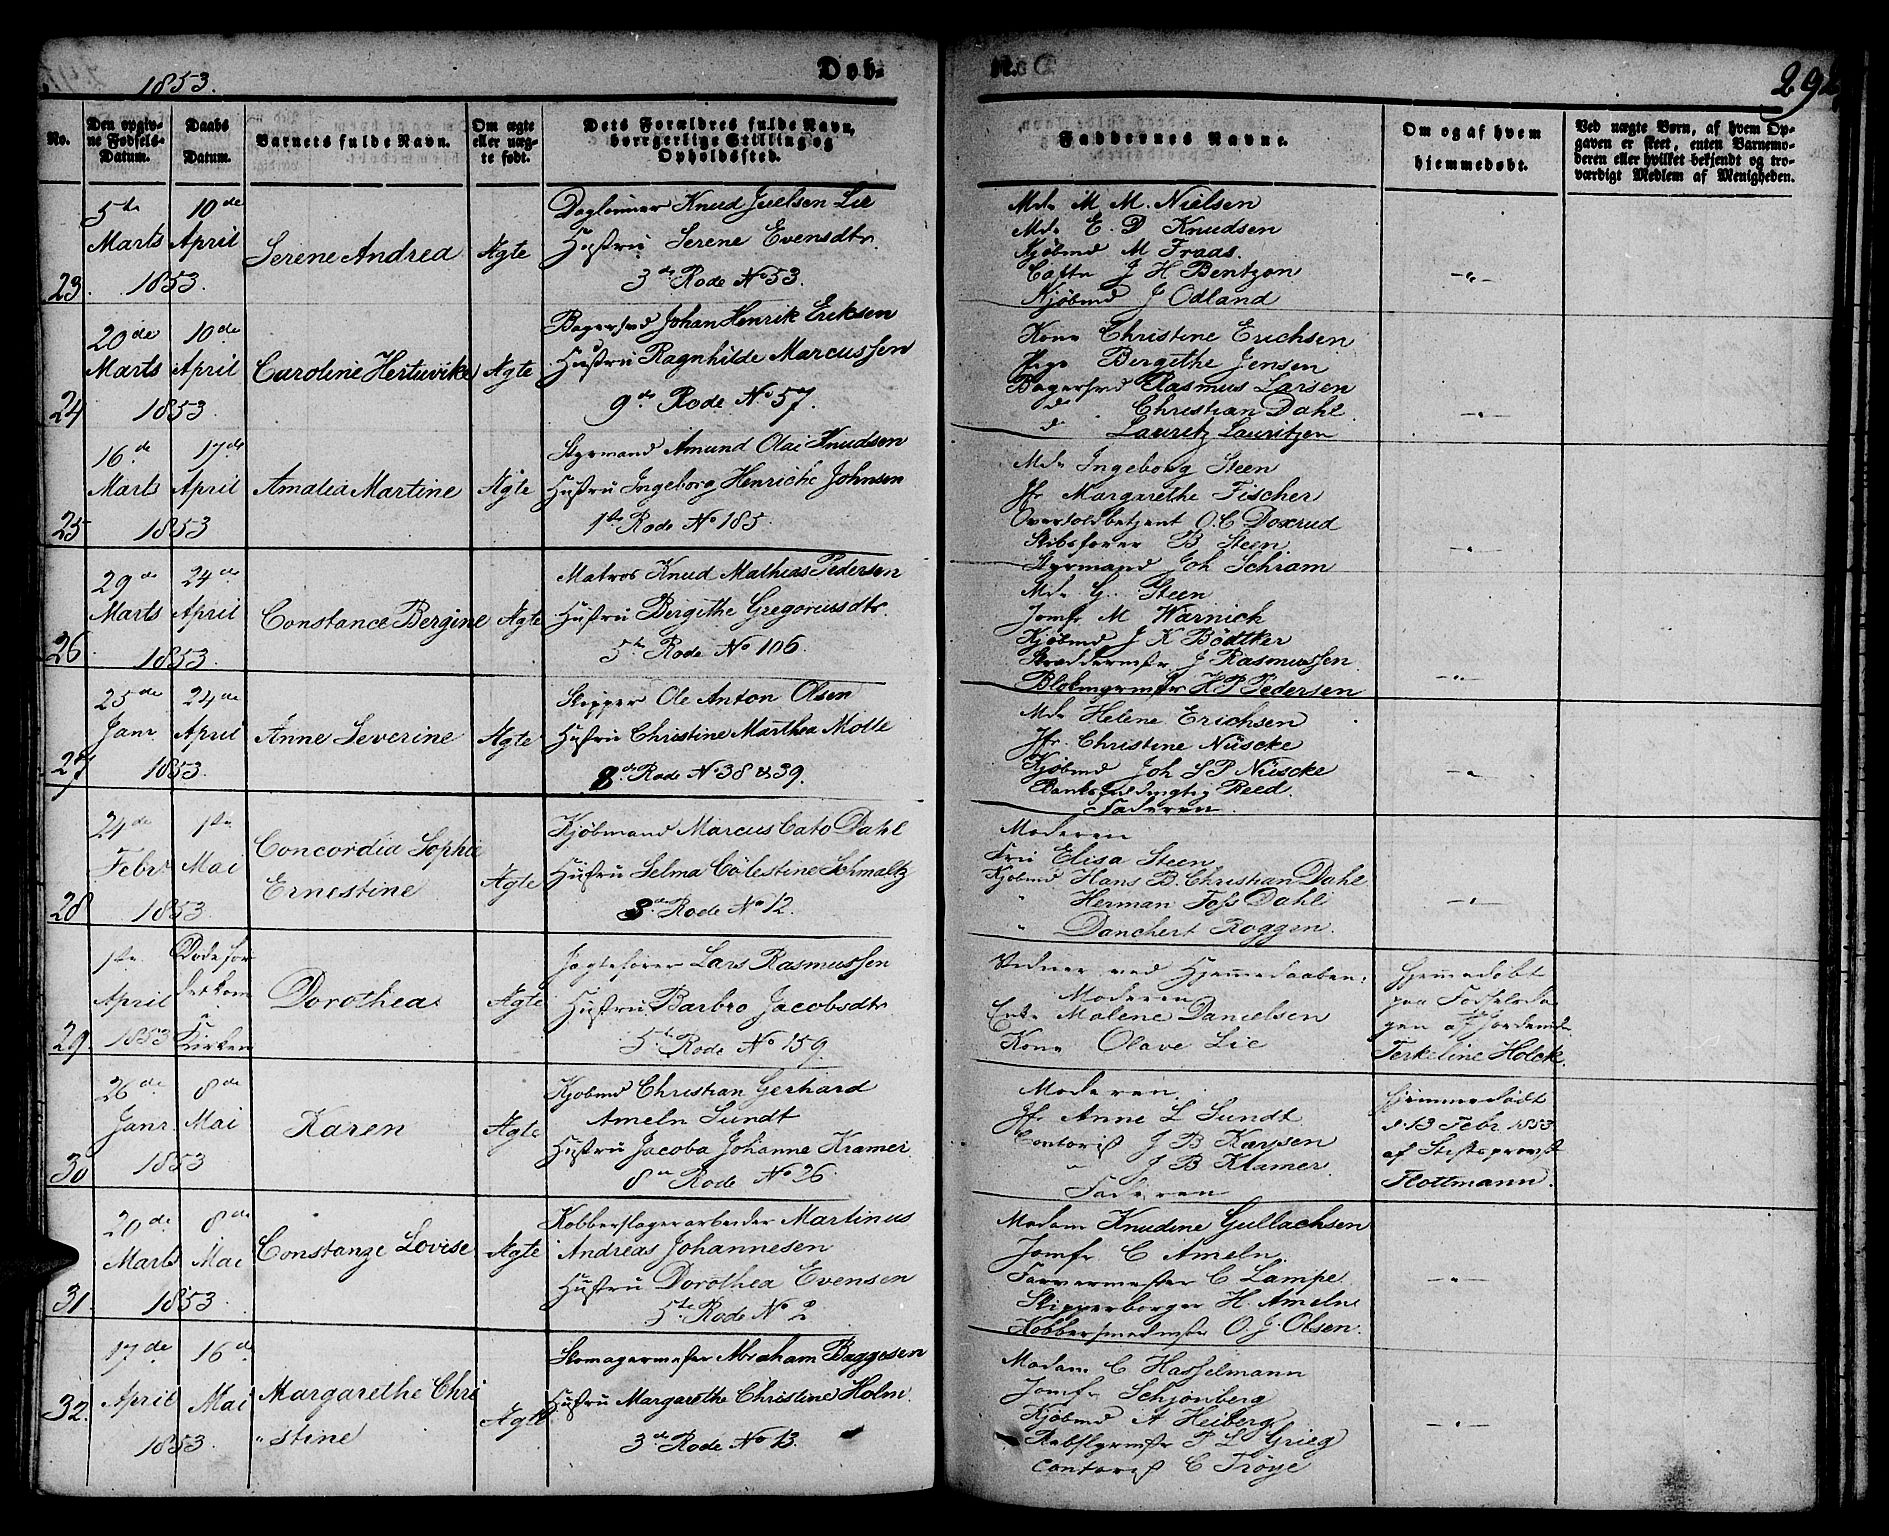 1853.
Døb-
te.
292
No.
Den opgiv-
ne Fødsels-
Datum.
Daabs
Datum.
Barnets fulde Navn.
Om ægte
eller uæg-
te født.
Dets Forældres fulde Navn,
borgerlige Stilling og
Opholdssted.
Faddernes Navne.
Om og af hvem
hjemmedøbt.
Ved uægte Børn, af hvem Op-
gaven er skeet, enten Barnemo-
deren eller hvilket bekjendt og tro-
værdigt Medlem af Menigheden.
23.
5te
Marts
1853.
10de
April
Serene Andrea
Ægte
Dagleiner Knud Juelsen Lie
Hustru Serene Evensdtr.
3de Rode No 53.
Mde M M. Nielsen
Mde E. D Knudsen
Kjøbmd M Fraas.
Captn J H Bentzon
Kjøbmd J Odland
-"-
24
20de
Marts
1853.
10de
April
Caroline Hertuvike
Ægte
Bagersvd Johan Henrik Eriksen
Hustru Ragnhilde Marcussen
9de Rode No 57.
Kone Christine Erichsen
Pige Bergithe Jensen
Bagersvd Rasmus Larsen
do Christian Dahl
do Lauritz Lauritzen
-"-
25
16de
Marts
1853
17de
April
Amalia Martine
Ægte
Styrmand Amund Olai Knudsen
Hustru Ingeborg Henriche Johnsen
1ste Rode No 185.
Mde Ingeborg Steen
Jfr Margarethe Fischer
Overtoldbetjent O. C Doxrud
Skibsfører B Steen
Styrmand Joh Schram
-"-
26
29de
Marts
1853.
24de
April
Constance Bergine
Ægte
Matros Knud Mathias Pedersen
Hustru Bergithe Gregoriusdtr.
5te Rode No 106.
Mde G. Steen
Jomfr M Warnich
Kjøbmd J K Bödtker
Skræddermstr J Rasmussen
Blokmagermstr H P Pedersen
-"-
27
25de
Janr
1853.
24de
April
Anne Severine
Ægte
Skipper Ole Anton Olsen
Hustru Christine Marthea Molte
8de Rode No 38 & 39.
Mde Helene Erichsen
Jfr. Christine Nüscke
Kjøbmd Joh S P Nüscke
Reed.
Faderen.
-"-
28
24de
Febr
1853
1ste
Mai
Concordia Sophie
Ernestine
Ægte
Kjøbmand Marcus Cato Dahl
Hustru Selma Cölestine Schmaltz
3de Rode No 12.
Moderen
Fru Elisa Steen
Kjøbmd Hans B. Christian Dahl
" Herman Foss Dahl
" Danchert Roggen.
-"-
29.
1ste
April
1853
Døde før
det kom
i
Kirken
Dorothea
Ægte
Jagtefører Lars Rasmussen
Hustru Barbro Jacobsdtr
5te Rode No 159.
Vidner ved Hjemmedaaben:
Moderen
Enke Malene Danielsen
Kone Olave Lie
Hjemmedøbt
paa Fødselsda
gen af Jordemdr
Terkeline Holck
30
26de
Janr.
1853
8de
Mai
Karen
Ægte
Kjøbmd Christian Gerhard
Ameln Sundt
Hustru Jacoba Johanne Kramer
8de Rode No 26.
Moderen.
Jfr Anne L Sundt
Contorist J B Kaysen
" J B Klamer.
Faderen
Hjemmedøbt
d 13 Febr 1853
af Stiftsprovst
Flottmann.
31.
20de
Marts
1853.
8de
Mai
Constanze Lovise
Ægte
Kobberslagerarbeider Martinus
Andreas Johannesen
Hustru Dorothea Evensen
5te Rode No 2
Madam Knudine Gullachsen
Jomfr C Ameln
Farvermester C Lampe.
Skipperborger H. Ameln
Kobbersmedmstr O. J. Olsen.
-"-
32.
17de
April
1853.
16de
Mai
Margarethe Chri
"stine
Ægte
Skomagermester Abraham Baggesen
Hustru Margarethe Christine Holm
3de Rode No 13.
Madam C Hasselmann
Jomfr Schjönberg
Kjøbmd A Heiberg
Rebslgrmstr P L Grieg
Contorist C Tröye
-"-